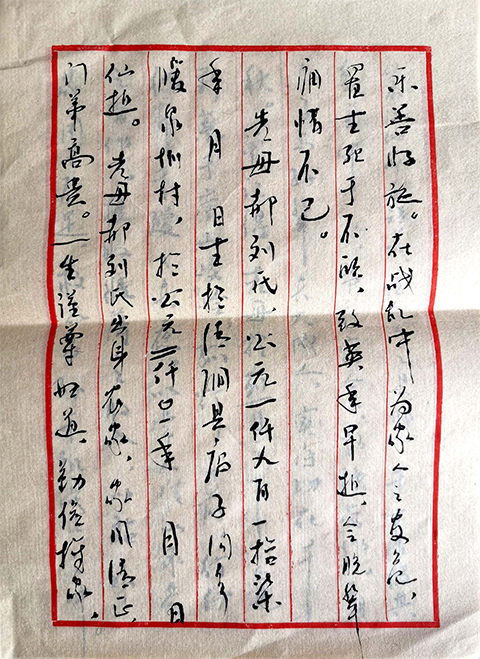 乐善好施。在战乱中为家人之安危、
置生死于不顾，致英年早逝，令晚辈
痛惜不已。
先母郝刘氏，公元一仟九百一拾柒
年 月 日生于清涧县店子沟乡
暖泉圳村，于公元二〇〇一年 月 日
仙逝。先母郝刘氏出身农家，家风清正，
门第高贵。一生谨遵妇道，勤俭持家，